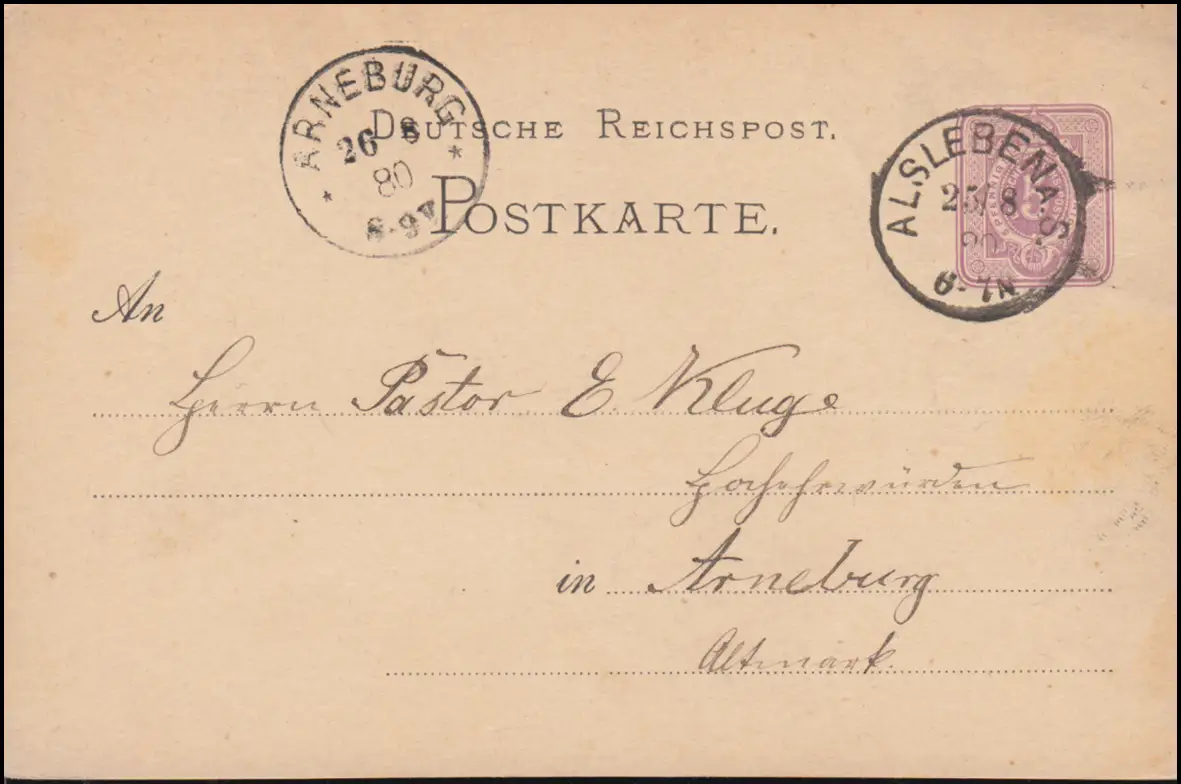 ARNEBURG
26 8
80
8-9V
DEUTSCHE REICHSPOST.
ALSLEBEN A. S.
25/8
80
6-7N
POSTKARTE.
An
Herrn Pastor E. Kluge
Hochehrwürden
in Arneburg
Altmark.